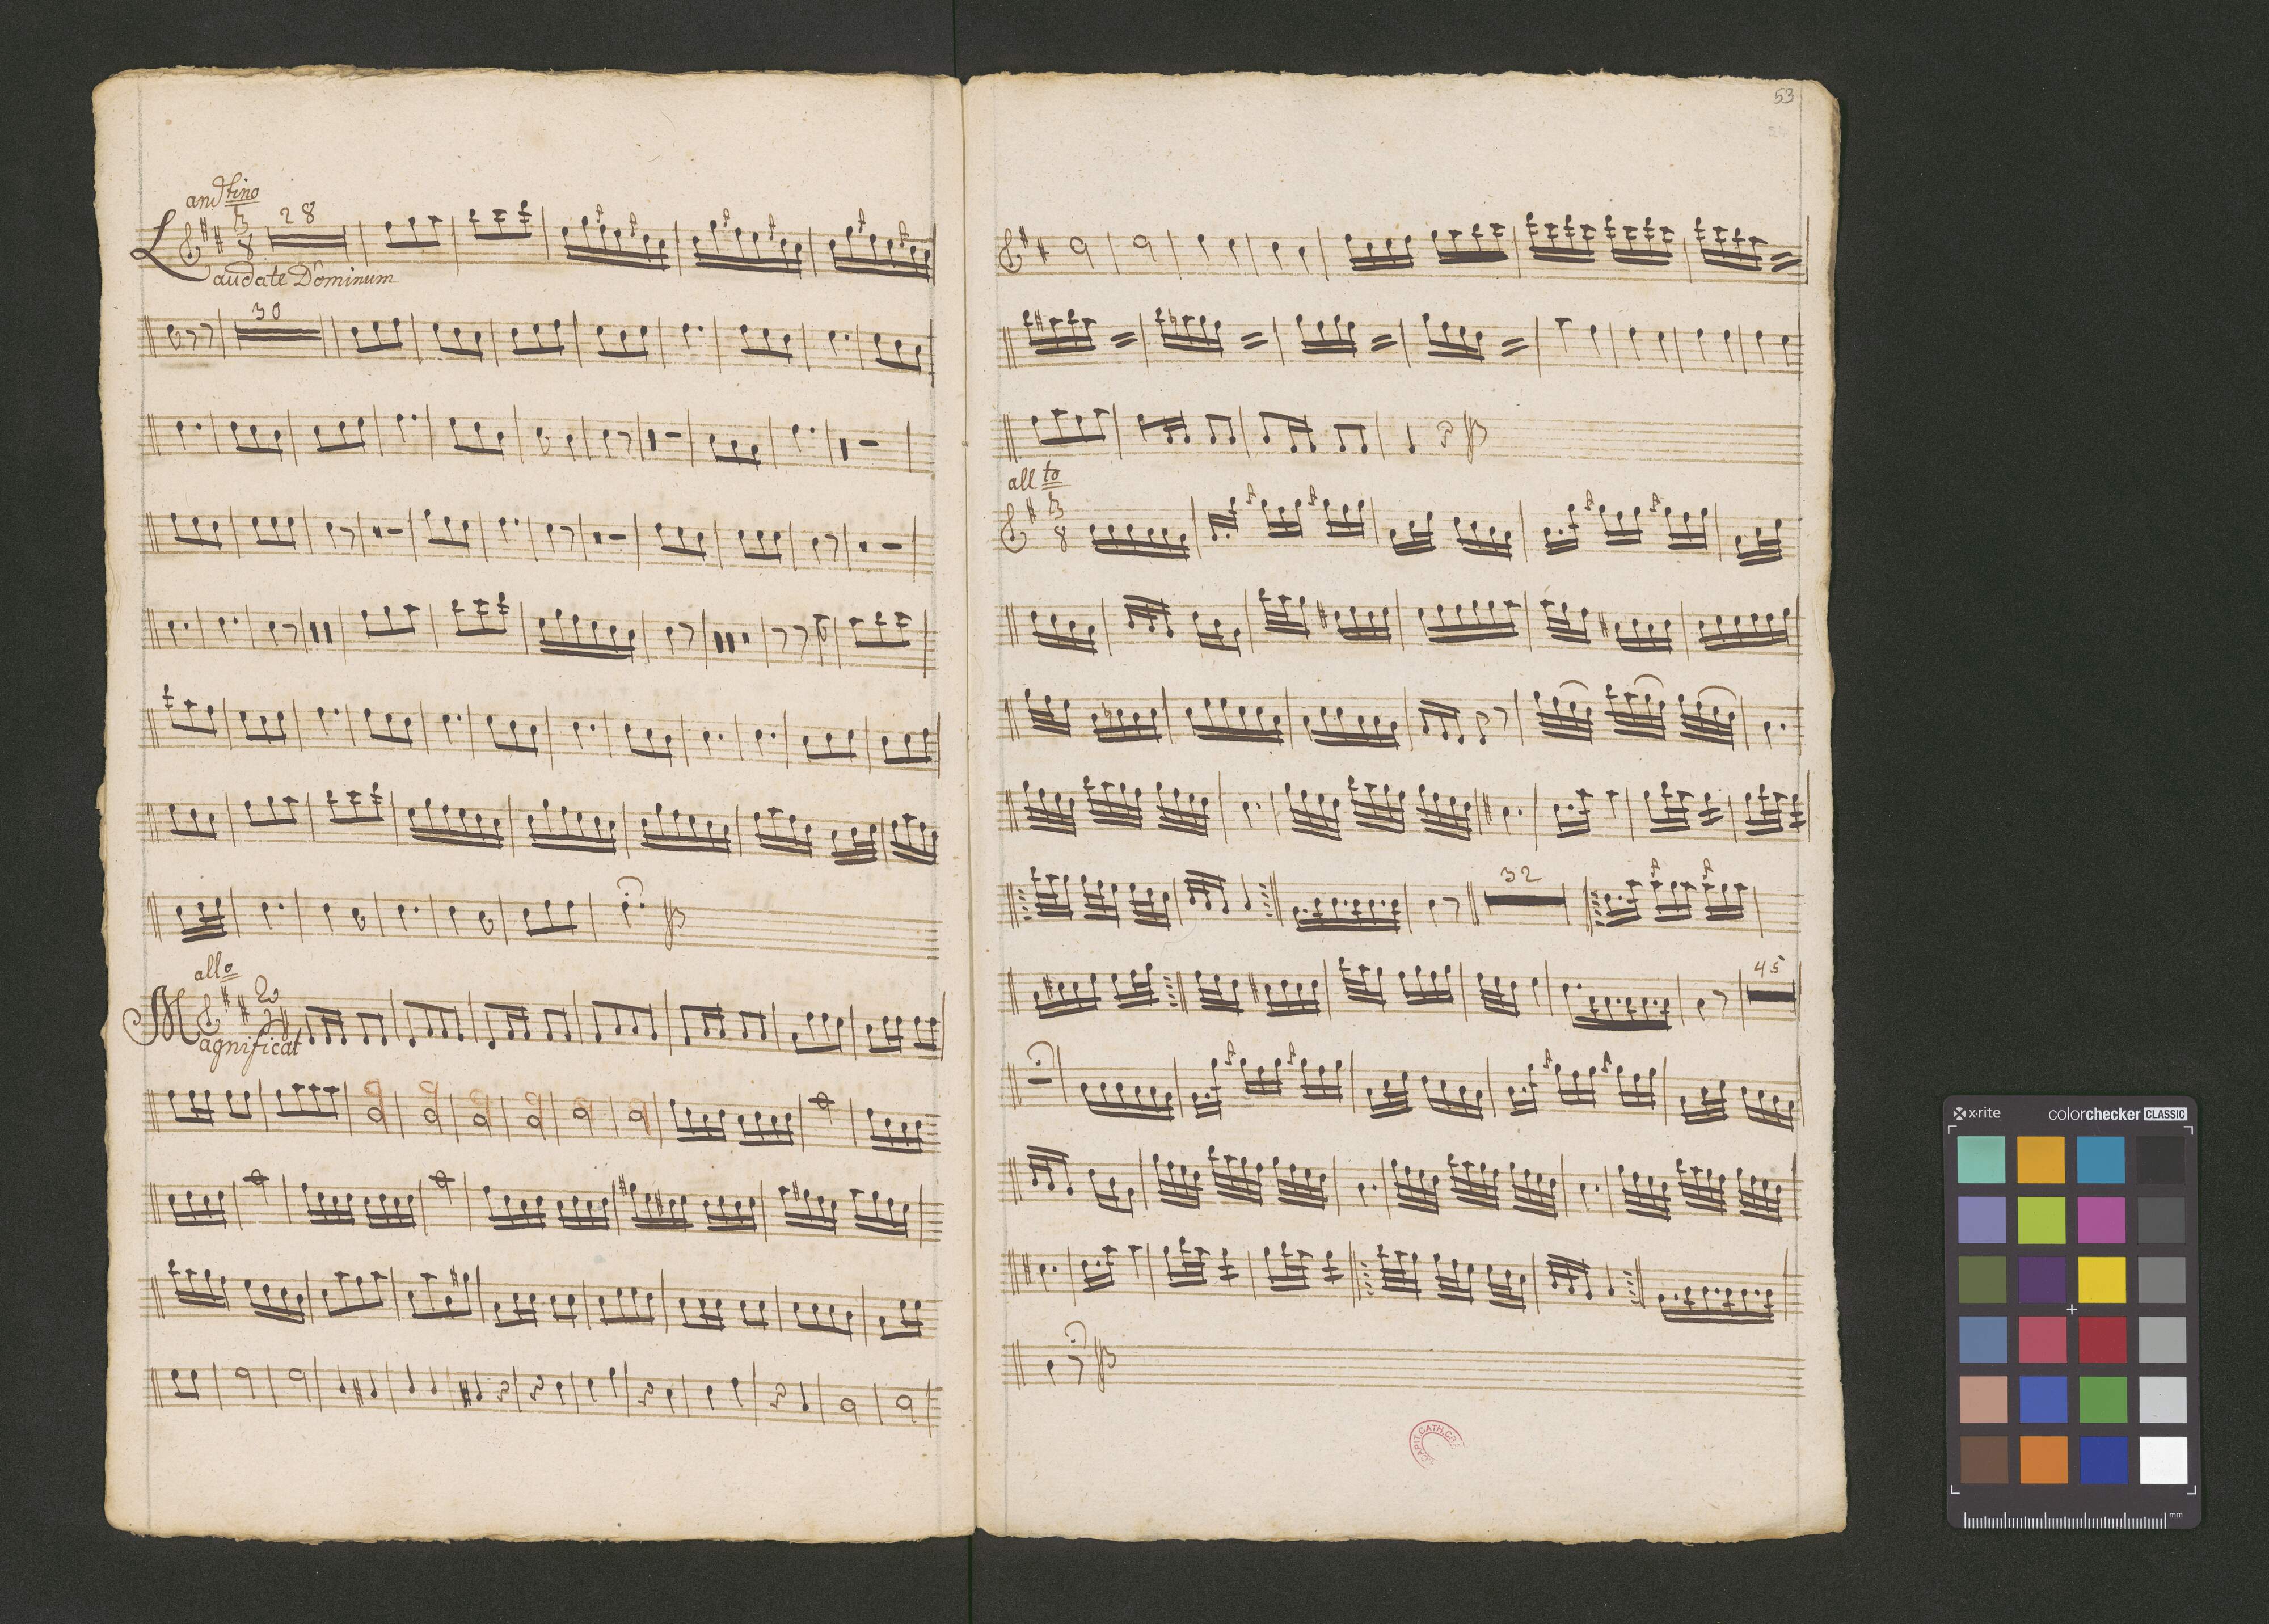 andtino
3
8
28
Laudate Dominum
30
allo
2
4
Magnificat
53
allto
3
8
32
45
CAPIT. CATH. CR
x-rite
colorchecker CLASSIC
mm